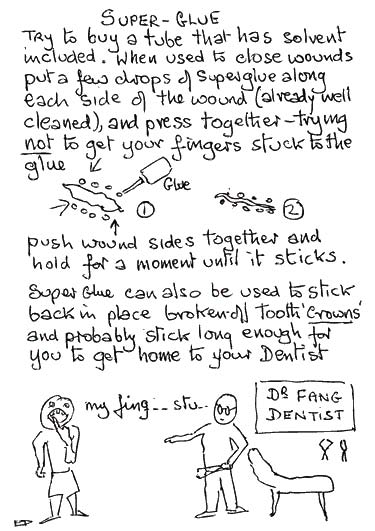 SUPER-GLUE
Try to buy a tube that has solvent
included. When used to close wounds
put a few drops of Superglue along
each side of the wound (already well
cleaned), and press together-trying
not to get your fingers stuck to the
glue
Glue
1
2
push wound sides together and
hold for a moment until it sticks.
Super Glue can also be used to stick
back in place broken off Tooth 'Crowns'
and probably stick long enough for
you to get home to your Dentist
my fing... stu..
DR FANG
DENTIST